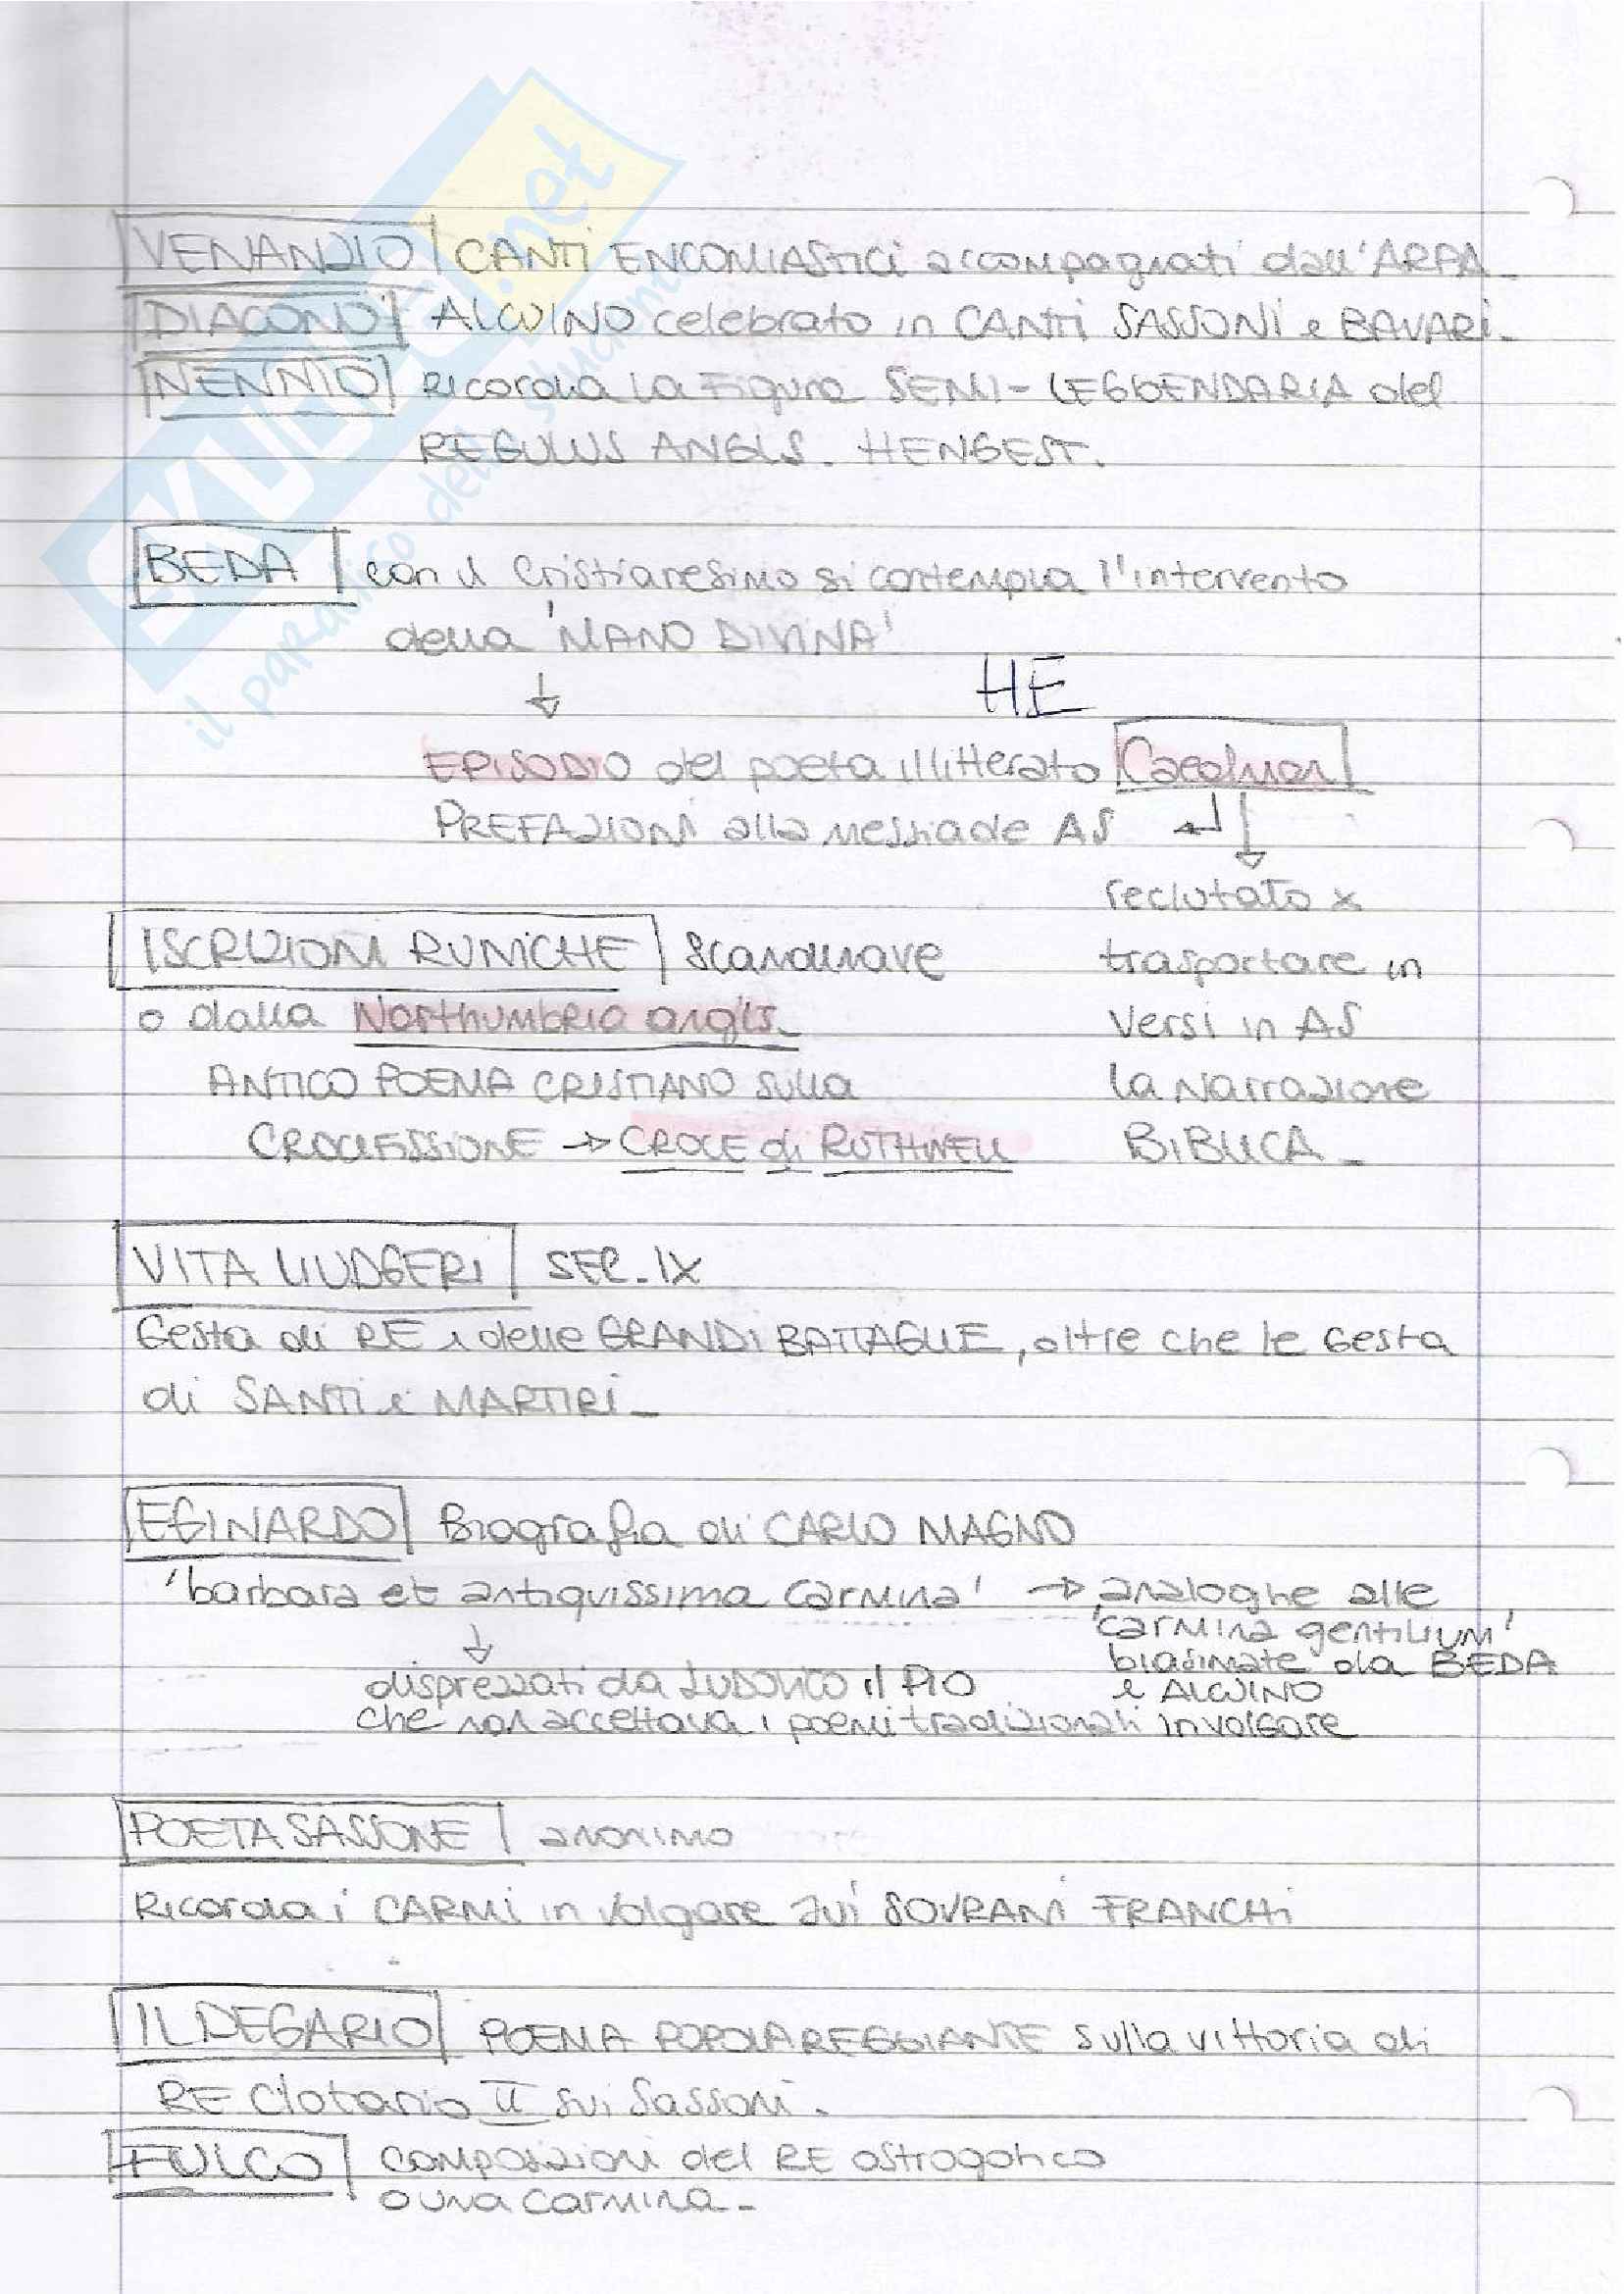 SKUOLA.net
il paradiso dello studente
VENANZIO CANTI ENCOMIASTICI accompagnati dall'ARPA.
DIACONO ALCUINO celebrato in CANTI SASSONI e BAVARI.
NENNIO Ricorda la Figura SEMI-LEGGENDARIA del
REGULUS ANGLS. HENGEST.
BEDA con il Cristianesimo si contempla l'intervento
della 'MANO DIVINA'
↓
HE
EPISODIO del poeta illitterato Caedmon
PREFAZIONI alla messiade AS ↵ ↓
reclutato x
ISCRIZIONI RUNICHE Scandinave
trasportare in
o dalla Northumbria angls.
versi in AS
ANTICO POEMA CRISTIANO sulla
la narrazione
CROCIFISSIONE → CROCE di RUTHWELL
BIBLICA.
VITA LIUDGERI SEC. IX
Gesta di RE e delle GRANDI BATTAGLIE, oltre che le gesta
di SANTI e MARTIRI.
EGINARDO Biografia di CARLO MAGNO
'barbara et antiquissima carmina' → analoghe alle
'carmina gentilium'
↓
biasimate da BEDA
e ALCUINO
disprezzati da LUDOVICO il PIO
che non accettava i poemi tradizionali in volgare
POETA SASSONE anonimo
Ricorda i CARMI in volgare sui SOVRANI FRANCHI
ILDEGARIO POEMA POPOLAREGGIANTE sulla vittoria di
RE Clotario II sui Sassoni.
FULCO composizioni del RE ostrogotico
o una carmina.